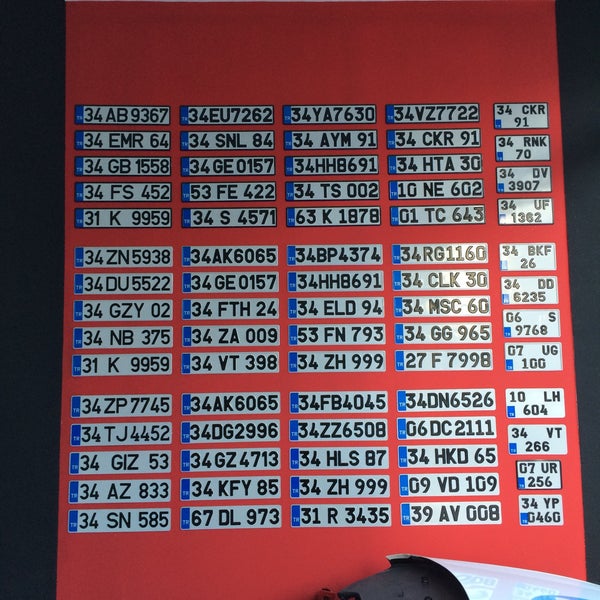 34 AB 9367 34 EU 7262 34 YA 7630 34 VZ 7722 34 CKR
91
34 EMR 64 34 SNL 84 34 AYM 91 34 CKR 91 34 RNK
70
34 GB 1558 34 GE 0157 34 HH 8691 34 HTA 30 34 DV
3907
34 FS 452 53 FE 422 34 TS 002 10 NE 602 34 UF
1362
31 K 9959 34 S 4571 63 K 1878 01 TC 643
34 ZN 5938 34 AK 6065 34 BP 4374 34 RG 1160 34 BKF
26
34 DU 5522 34 GE 0157 34 HH 8691 34 CLK 30 34 DD
6235
34 GZY 02 34 FTH 24 34 ELD 94 34 MSC 60 06 S
9768
34 NB 375 34 ZA 009 53 FN 793 34 GG 965 07 UG
100
31 K 9959 34 VT 398 34 ZH 999 27 F 7998
34 ZP 7745 34 AK 6065 34 FB 4045 34 DN 6526 10 LH
604
34 TJ 4452 34 DG 2996 34 ZZ 6508 06 DC 2111 34 VT
266
34 GIZ 53 34 GZ 4713 34 HLS 87 34 HKD 65 07 UR
256
34 AZ 833 34 KFY 85 34 ZH 999 09 VD 109 34 YP
0460
34 SN 585 67 DL 973 31 R 3435 39 AV 008